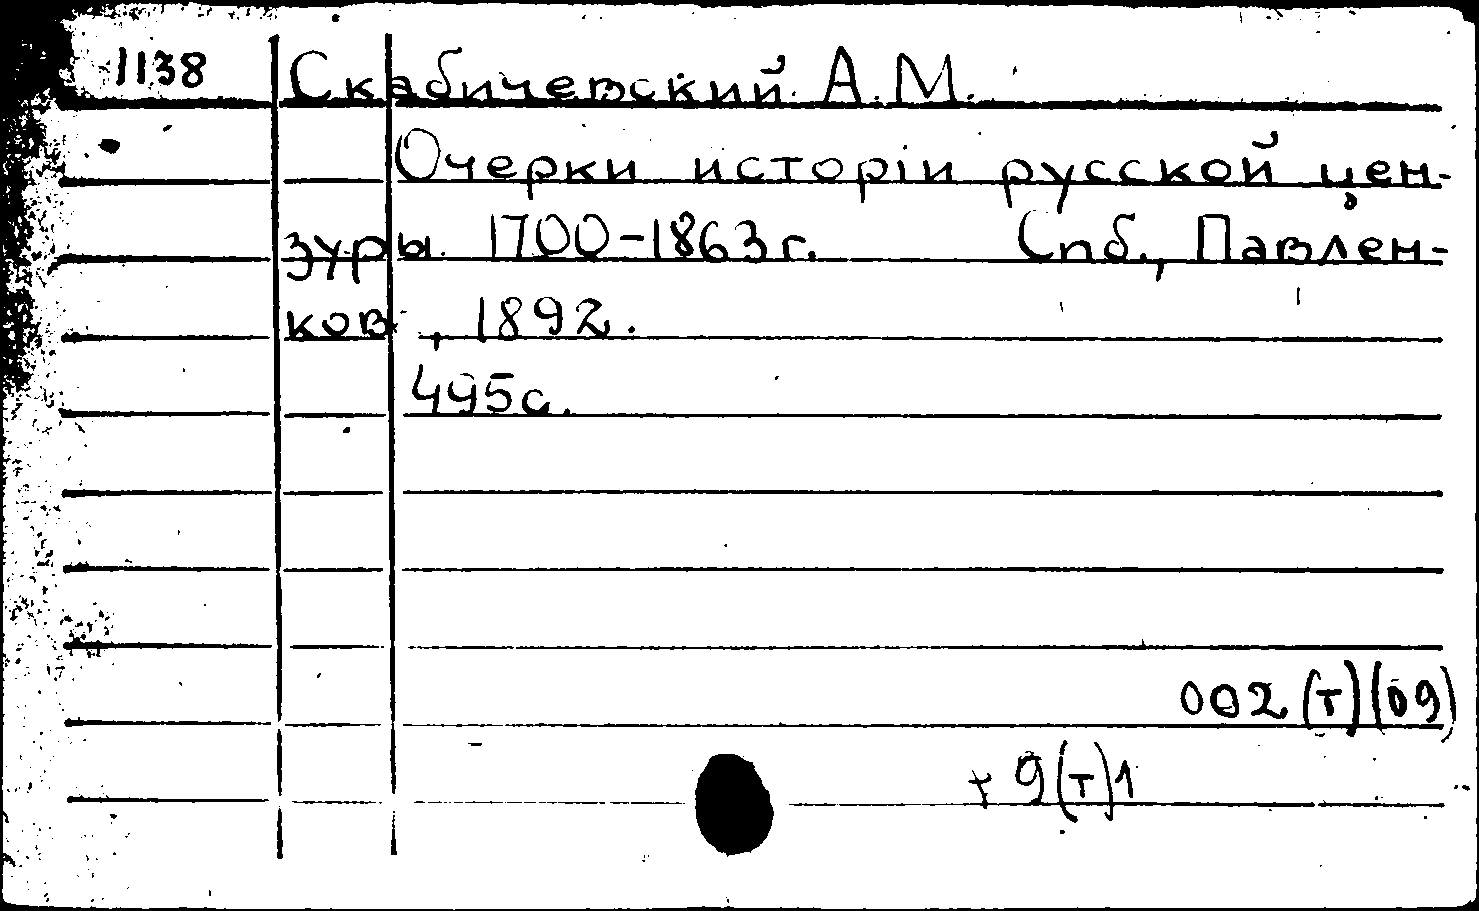 1138 Скабичевский А. М.
Очерки исторіи русской цен-
зуры. 1700-1863 г. Спб., Павлен-
ков, 1892.
495 с.
002 (т) (09)
+ 9 (т) 1